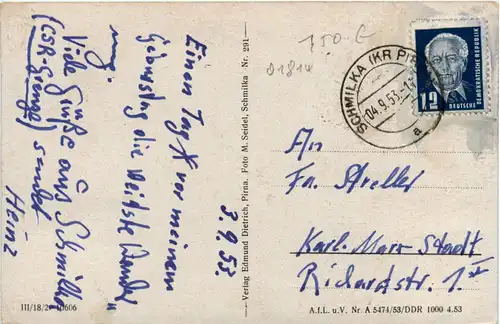 3.9.53
Einen Tag vor meinem
Geburtstag die
Viele Grüße aus Schmilka
(CSR-Grenze) sendet
Heinz
III/18/2
Verlag Edmund Dietrich, Pirna. Foto M. Seidel, Schmilka Nr. 291
150.-
01814
SCHMILKA (KR PIR
04.9.53.-1
a
DEUTSCHE DEMOKRATISCHE REPUBLIK
12
An
Fa. Streller
Karl-Marx-Stadt
Richardtstr. 1
A.f.L. u.V. Nr A 5474/53/DDR 1000 4.53